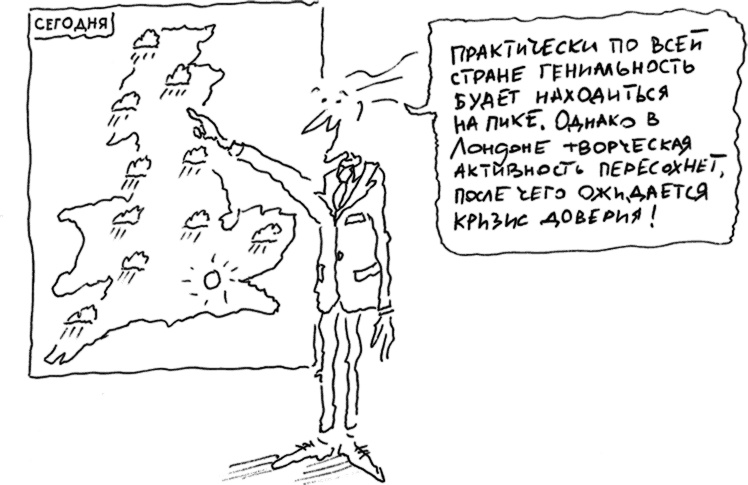 СЕГОДНЯ
ПРАКТИЧЕСКИ ПО ВСЕЙ
СТРАНЕ ГЕНИАЛЬНОСТЬ
БУДЕТ НАХОДИТЬСЯ
НА ПИКЕ. ОДНАКО В
ЛОНДОНЕ ТВОРЧЕСКАЯ
АКТИВНОСТЬ ПЕРЕСОХНЕТ,
ПОСЛЕ ЧЕГО ОЖИДАЕТСЯ
КРИЗИС ДОВЕРИЯ!